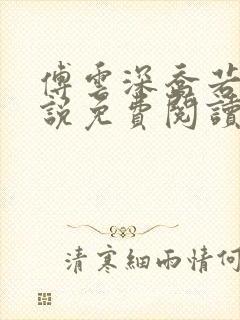 傅雲深喬若
說免費閱讀
清寒細雨情何